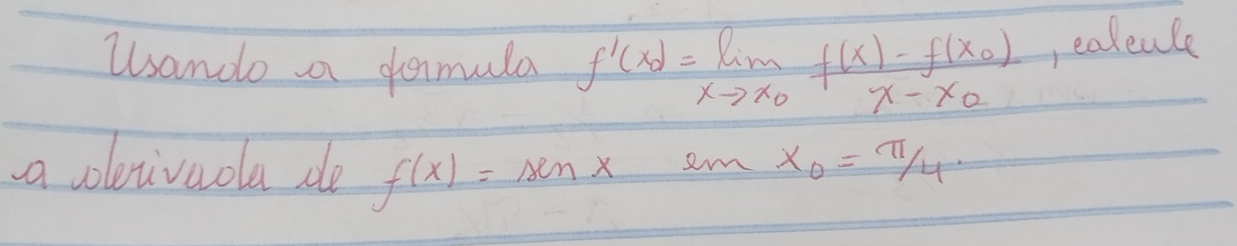 Usando a formula f'(x₀) = lim x→x₀ f(x) - f(x₀) / x - x₀ , calcule
a derivada de f(x) = sen x em x₀ = π/4.